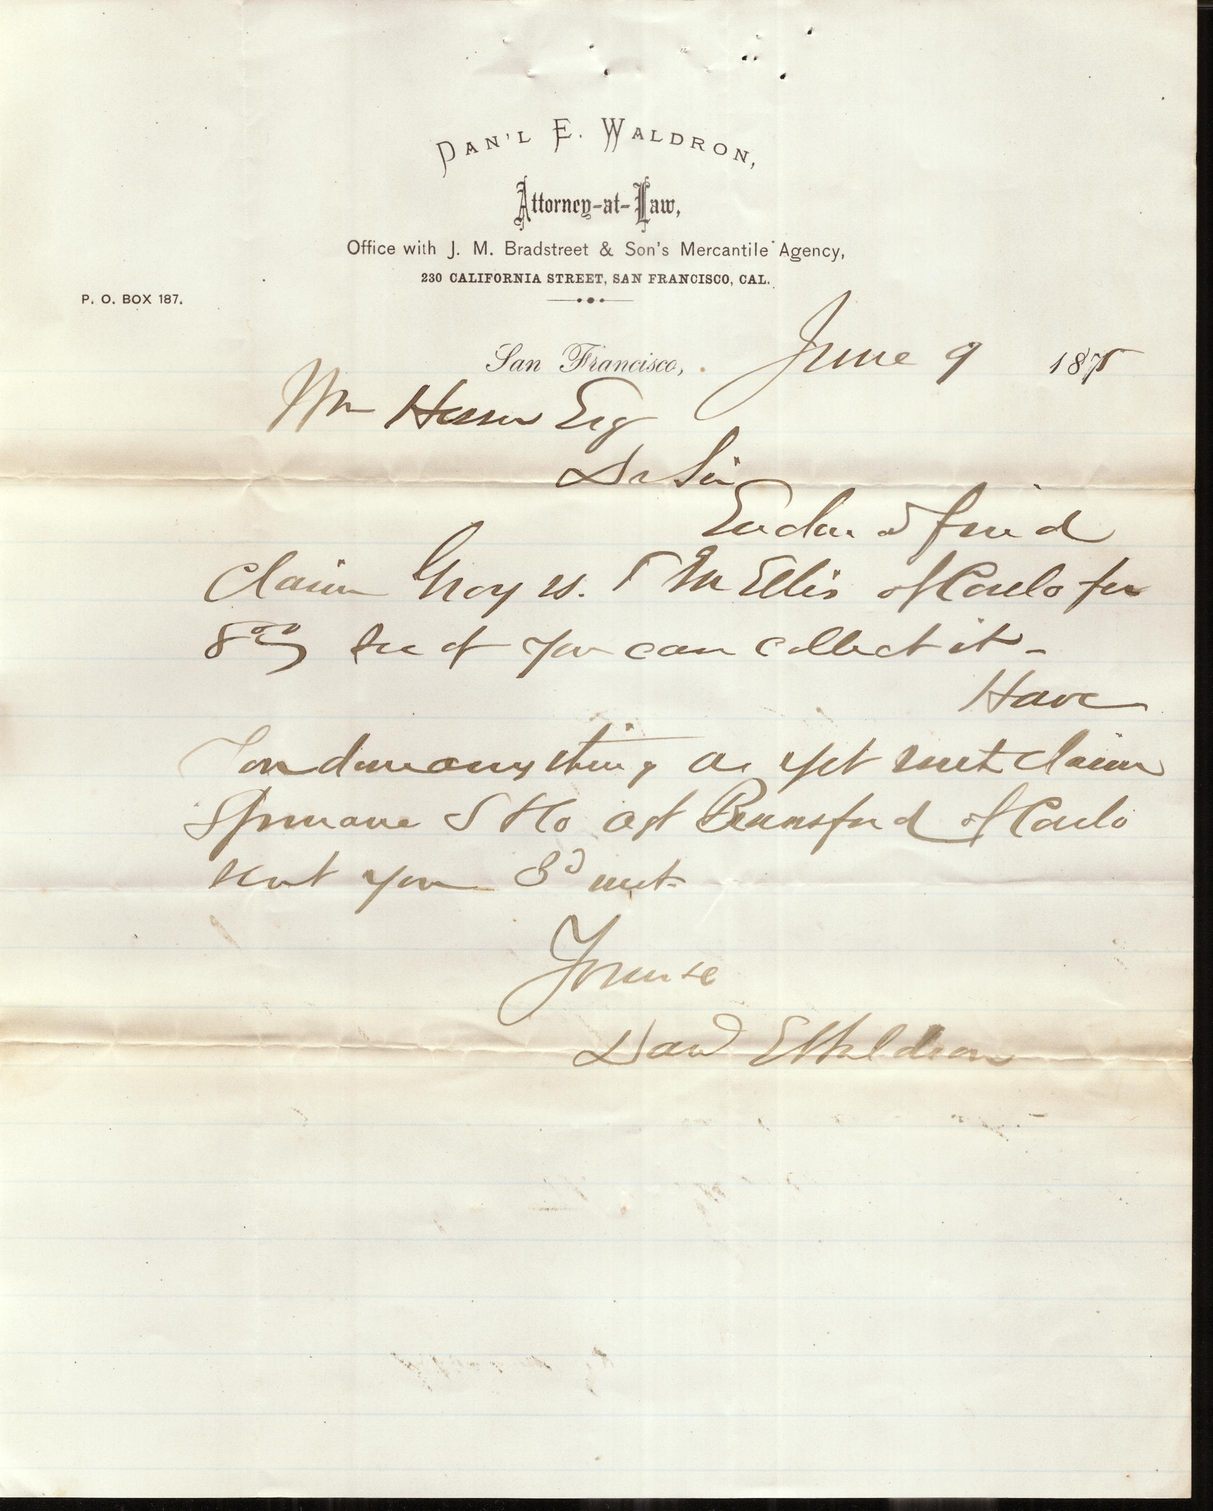 DAN'L E. WALDRON,
Attorney-at-Law,
Office with J. M. Bradstreet & Son's Mercantile Agency,
230 CALIFORNIA STREET, SAN FRANCISCO, CAL.
P. O. BOX 187.
San Francisco, June 9 1875
Wm Esq
Dr Sir
find
claim Gray vs. Ellis of for
8 See if you can collect it -
Have
You done anything as yet claim
& Co agt of
sent you 3d
Yours &c
Danl E Waldron